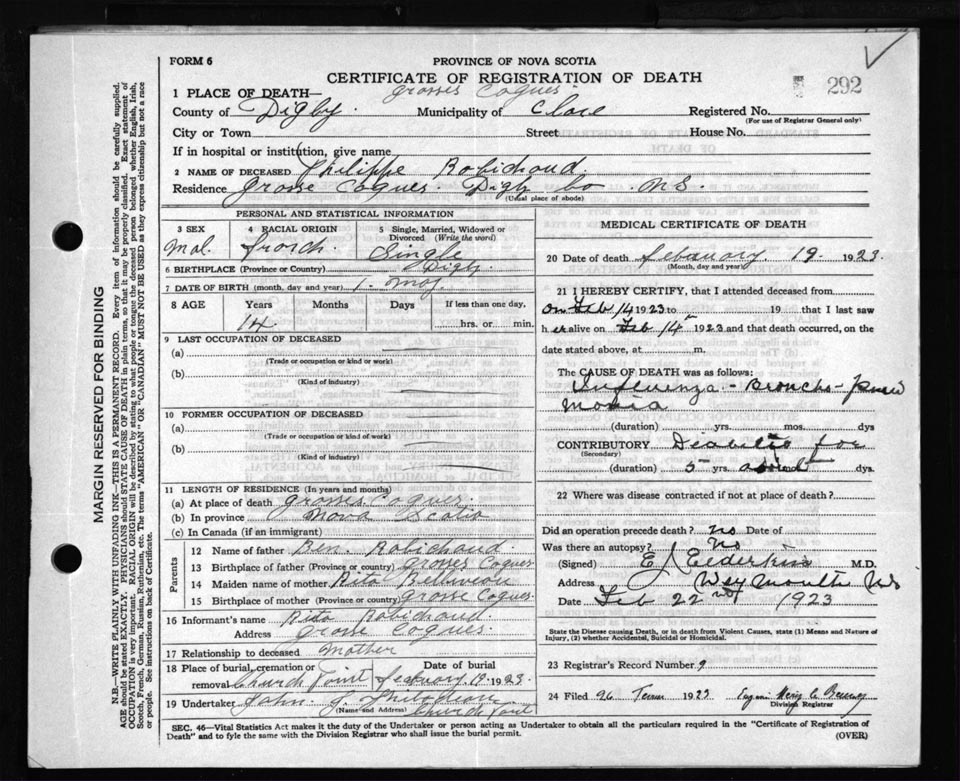 FORM 6
PROVINCE OF NOVA SCOTIA
CERTIFICATE OF REGISTRATION OF DEATH
292
1 PLACE OF DEATH— Grosses Coques
County of Digby Municipality of Clare Registered No.
(For use of Registrar General only)
City or Town Street House No.
If in hospital or institution, give name
2 NAME OF DECEASED Philippe Robichaud
Residence Grosse Coques. Digby Co N.S.
(Usual place of abode)
PERSONAL AND STATISTICAL INFORMATION
3 SEX 4 RACIAL ORIGIN 5 Single, Married, Widowed or Divorced (Write the word)
Mal. French Single
6 BIRTHPLACE (Province or Country) Digby
7 DATE OF BIRTH (month, day and year) 1. May
8 AGE Years Months Days If less than one day,
14 hrs. or min.
9 LAST OCCUPATION OF DECEASED
(a)
(Trade or occupation or kind or work)
(b)
(Kind of industry)
10 FORMER OCCUPATION OF DECEASED
(a)
(Trade or occupation or kind of work)
(b)
(Kind of industry)
11 LENGTH OF RESIDENCE (In years and months)
(a) At place of death Grosses Coques
(b) In province Nova Scotia
(c) In Canada (if an immigrant)
Parents
12 Name of father Ben. Robichaud
13 Birthplace of father (Province or country) Grosses Coques
14 Maiden name of mother Rita Belliveau
15 Birthplace of mother (Province or country) Grosse Coques
16 Informant's name Rita Robichaud
Address Grosse Coques.
17 Relationship to deceased mother
18 Place of burial, cremation or removal Church Point Date of burial 19 1923
19 Undertaker John
(Name and Address) Church Point
MEDICAL CERTIFICATE OF DEATH
20 Date of death February 19. 1923.
(Month, day and year)
21 I HEREBY CERTIFY, that I attended deceased from
on Feb 14 1923 to 19 that I last saw
h alive on Feb 14 1923 and that death occurred, on the
date stated above, at m.
The CAUSE OF DEATH was as follows:
Influenza - Broncho - pneu
monia
(duration) yrs. mos. dys.
CONTRIBUTORY Diabetes for
(Secondary)
(duration) 5 yrs. dys.
22 Where was disease contracted if not at place of death?
Did an operation precede death? no Date of
Was there an autopsy? No
(Signed) E J Elderkin M.D.
Address Weymouth NS
Date Feb 22nd 1923
State the Disease causing Death, or in death from Violent Causes, state (1) Means and Nature of
Injury, (2) whether Accidental, Suicidal or Homicidal.
23 Registrar's Record Number 9
24 Filed 26 1923
Division Registrar
SEC. 46—Vital Statistics Act makes it the duty of the Undertaker or person acting as Undertaker to obtain all the particulars required in the "Certificate of Registration of
Death" and to fyle the same with the Division Registrar who shall issue the burial permit.
(OVER)
MARGIN RESERVED FOR BINDING
N.B.—WRITE PLAINLY WITH UNFADING INK—THIS IS A PERMANENT RECORD. Every item of information should be carefully supplied.
AGE should be stated EXACTLY. PHYSICIANS should STATE CAUSE OF DEATH in plain terms, so that it may be properly classified. Exact statement of
OCCUPATION is very important. RACIAL ORIGIN will be described by stating to what people or tongue the deceased person belonged whether English, Irish,
Scotch, French, German, Russian, Ruthenian, etc. The terms "AMERICAN" or "CANADIAN" MUST NOT BE USED as they express citizenship but not a race
or people. See instructions on back of Certificate.